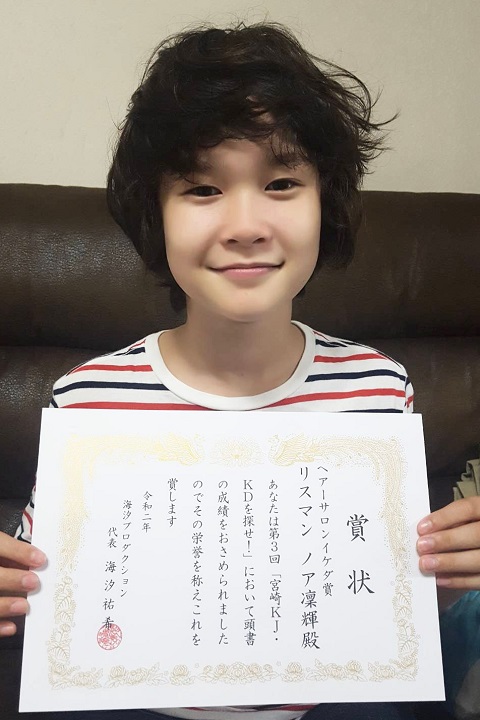 賞状
ヘアーサロンイケダ賞
リスマン ノア凜輝殿
あなたは第3回「宮崎KJ・
KDを探せ!」において頭書
の成績をおさめられました
のでその栄誉を称えこれを
賞します
令和二年
海汐プロダクション
代表 海汐祐希